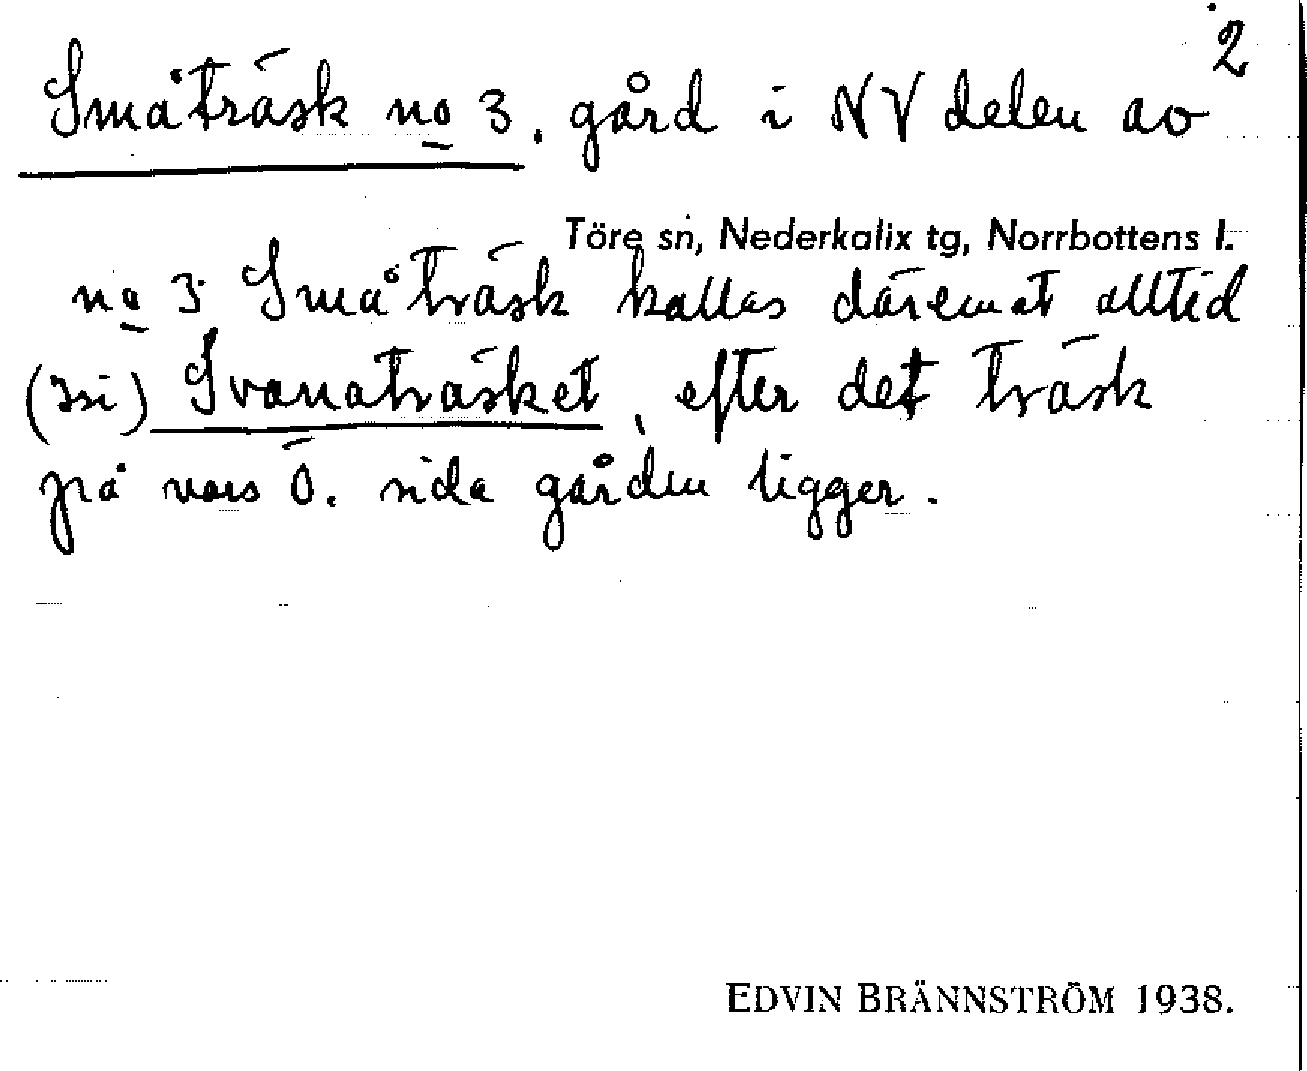 2
Småträsk no 3. gård i NV delen av
Töre sn, Nederkalix tg, Norrbottens l.
no 3 Småträsk kallas däremot alltid
Svanaträsket, efter det träsk
på vars Ö. sida gården ligger.
EDVIN BRÄNNSTRÖM 1938.